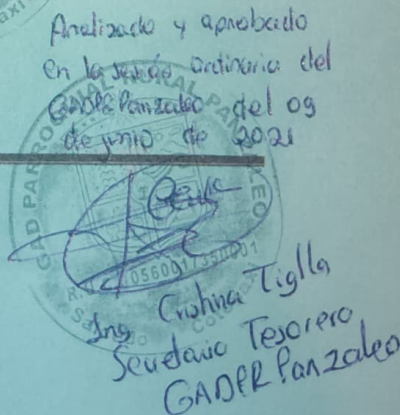 Analizado y aprobado
en la sesión ordinaria del
GADPR Panzaleo del 09
de junio de 2021
GAD PARROQUIAL RURAL PANZALEO
Ing Cristina Tiglla
Secretario Tesorero
GADPR Panzaleo